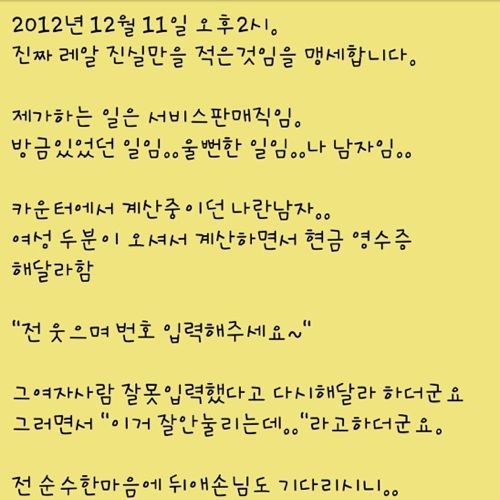 2012년 12월 11일 오후2시。
진짜 레알 진실만을 적은것임을 맹세합니다.
제가하는 일은 서비스판매직임.
방금있었던 일임。。울뻔한 일임。。나 남자임。。
카운터에서 계산중이던 나란남자。。
여성 두분이 오셔서 계산하면서 현금 영수증
해달라함
"전 웃으며 번호 입력해주세요~"
그여자사람 잘못입력했다고 다시해달라 하더군요
그러면서 "이거 잘안눌리는데。。"라고하더군요.
전 순수한마음에 뒤애손님도 기다리시니。。